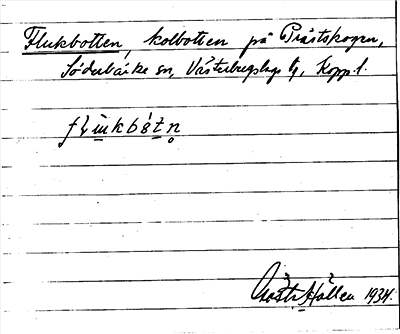 Flukbotten, kolbotten på Prästskogen,
Söderbärke sn, Västerbergslags tg, Kopp. l.
Hållen 1934.